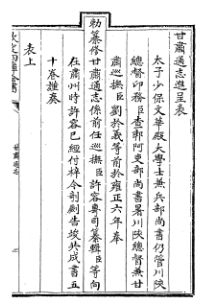 甘肅通志進呈表
太子少保文華殿大學士兼兵部尚書仍管川陝
總督印務臣查郎阿吏部尚書署川陝總督兼甘
肅巡撫臣劉於義等前於雍正六年奉
勅纂修甘肅通志係前任巡撫臣許容專司纂輯臣等向
在肅州時許容已經付梓今剞劂告竣共成書五
十卷謹奏
表上